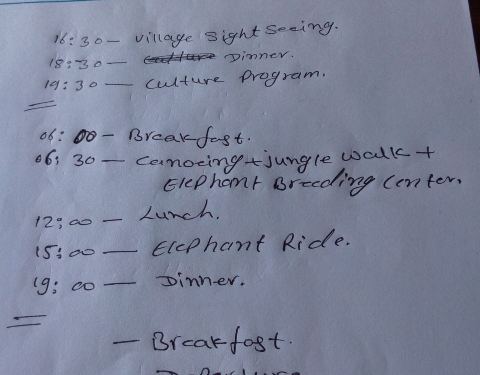 16:30 - Village Sight Seeing.
18:30 - Dinner.
19:30 - Culture Program.
06:00 - Breakfast.
06:30 - Canoeing + jungle walk +
Elephant Breeding Center.
12:00 - Lunch.
15:00 - Elephant Ride.
19:00 - Dinner.
- Breakfast.